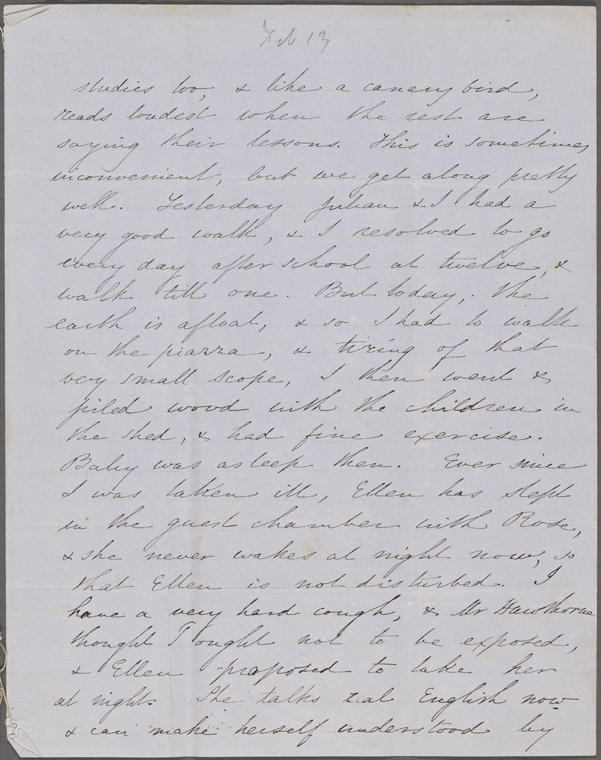 Feb 13
studies too, & like a canary bird,
reads loudest when the rest are
saying their lessons. This is sometimes
inconvenient, but we get along pretty
well. Yesterday Julian & I had a
very good walk, & I resolved to go
every day after school at twelve, &
walk till one. But today, the
earth is afloat, & so I had to walk
on the piazza, & tiring of that
very small scope, I then went &
piled wood with the children in
the shed, & had fine exercise.
Baby was asleep then. Ever since
I was taken ill, Ellen has slept
in the guest chamber with Rose,
& she never wakes at night now, so
that Ellen is not disturbed. I
have a very hard cough, & Mr Hawthorne
thought I ought not to be exposed,
& Ellen proposed to take her
at night. She talks real English now
& can make herself understood by